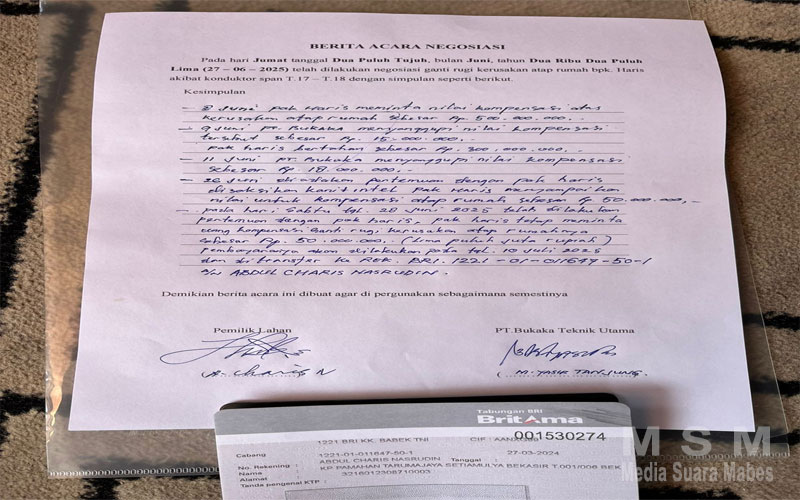 BERITA ACARA NEGOSIASI
Pada hari Jumat tanggal Dua Puluh Tujuh, bulan Juni, tahun Dua Ribu Dua Puluh
Lima (27 – 06 – 2025) telah dilakukan negosiasi ganti rugi kerusakan atap rumah bpk. Haris
akibat konduktor span T.17 – T.18 dengan simpulan seperti berikut.
Kesimpulan
- 8 Juni pak Haris meminta nilai kompensasi atas
kerusakan atap rumah sebesar Rp. 500.000.000,-
- 9 Juni PT. Bukaka menyanggupi nilai kompensasi
tersebut sebesar Rp. 15.000.000,-
pak haris bertahan sebesar Rp. 300.000.000,-
- 11 Juni PT. Bukaka menyanggupi nilai kompensasi
sebesar Rp. 18.000.000,-
- 26 Juni diadakan pertemuan dengan pak haris
disaksikan kanit intel pak Haris menyampaikan
nilai untuk kompensasi atap rumah sebesar Rp 50.000.000,-
- pada hari Sabtu tgl. 28 Juni 2025 telah dilakukan
pertemuan dengan pak haris, pak haris tetap meminta
uang kompensasi ganti rugi kerusakan atap rumahnya
sebesar Rp. 50.000.000. (Lima puluh juta rupiah)
pembayaranya akan dilakukan pada tgl. 10 Juli 2025
dan di transfer ke REK. BRI. 1221-01-011647-50-1
a/n ABDUL CHARIS NASRUDIN.
Demikian berita acara ini dibuat agar di pergunakan sebagaimana semestinya
Pemilik Lahan
PT.Bukaka Teknik Utama
(A. Charis N
(M. YASIR TANJUNG.)
Tabungan BRI
BritAma
001530274
1221 BRI KK. BABEK TNI
CIF :
Cabang
1221-01-011647-50-1
Tanggal : 27-03-2024
No. Rekening :
ABDUL CHARIS NASRUDIN
Nama
KP PAMAHAN TARUMAJAYA SETIAMULYA BEKASIR T.001/006 BEK
Alamat
3216012308710003
Tanda pengenal KTP
MSM
Media Suara Mabes